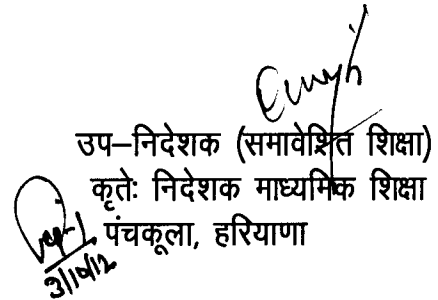 उप–निदेशक (समावेशित शिक्षा)
कृतेः निदेशक माध्यमिक शिक्षा
पंचकूला, हरियाणा
3/10/12